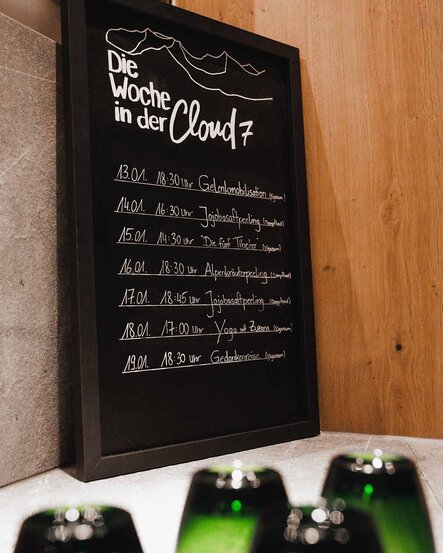 Die
Woche
in der Cloud 7
13.01. 18:30 Uhr Gelenkmobilisation (Yogaraum)
14.01. 16:30 Uhr Jojobasaftpeeling (Dampfbad)
15.01. 14:30 Uhr "Die fünf Tibeter" (Yogaraum)
16.01. 18:30 Uhr Alpenkräuterpeeling (Dampfbad)
17.01. 18:45 Uhr Jojobasaftpeeling (Dampfbad)
18.01. 17:00 Uhr Yoga mit (Yogaraum)
19.01. 18:30 Uhr Gedankenreise (Yogaraum)